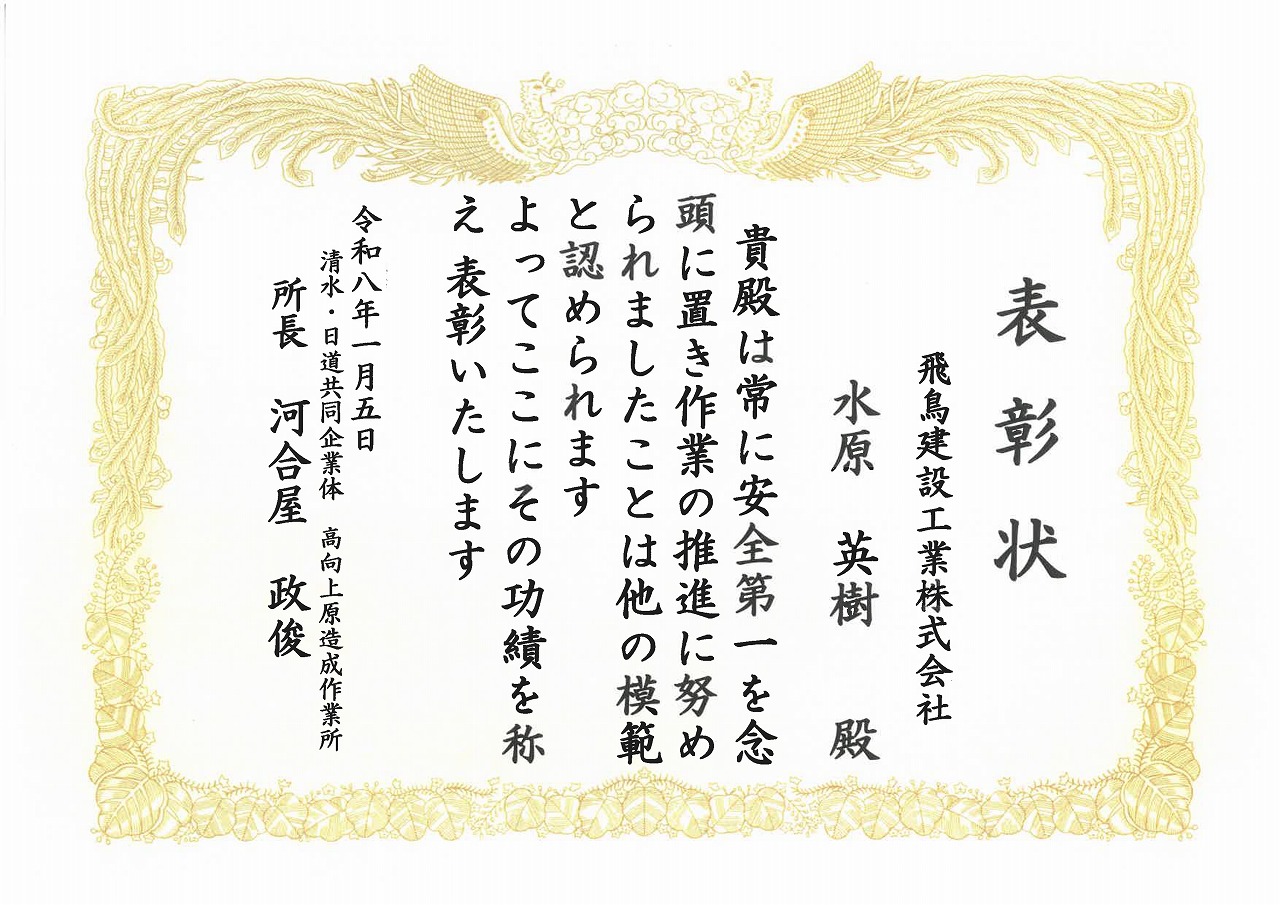 表彰状
飛鳥建設工業株式会社
水原 英樹 殿
貴殿は常に安全第一を念
頭に置き作業の推進に努め
られましたことは他の模範
と認められます
よってここにその功績を称
え 表彰いたします
令和八年一月五日
清水・日道共同企業体 高向上原造成作業所
所長 河合屋 政俊